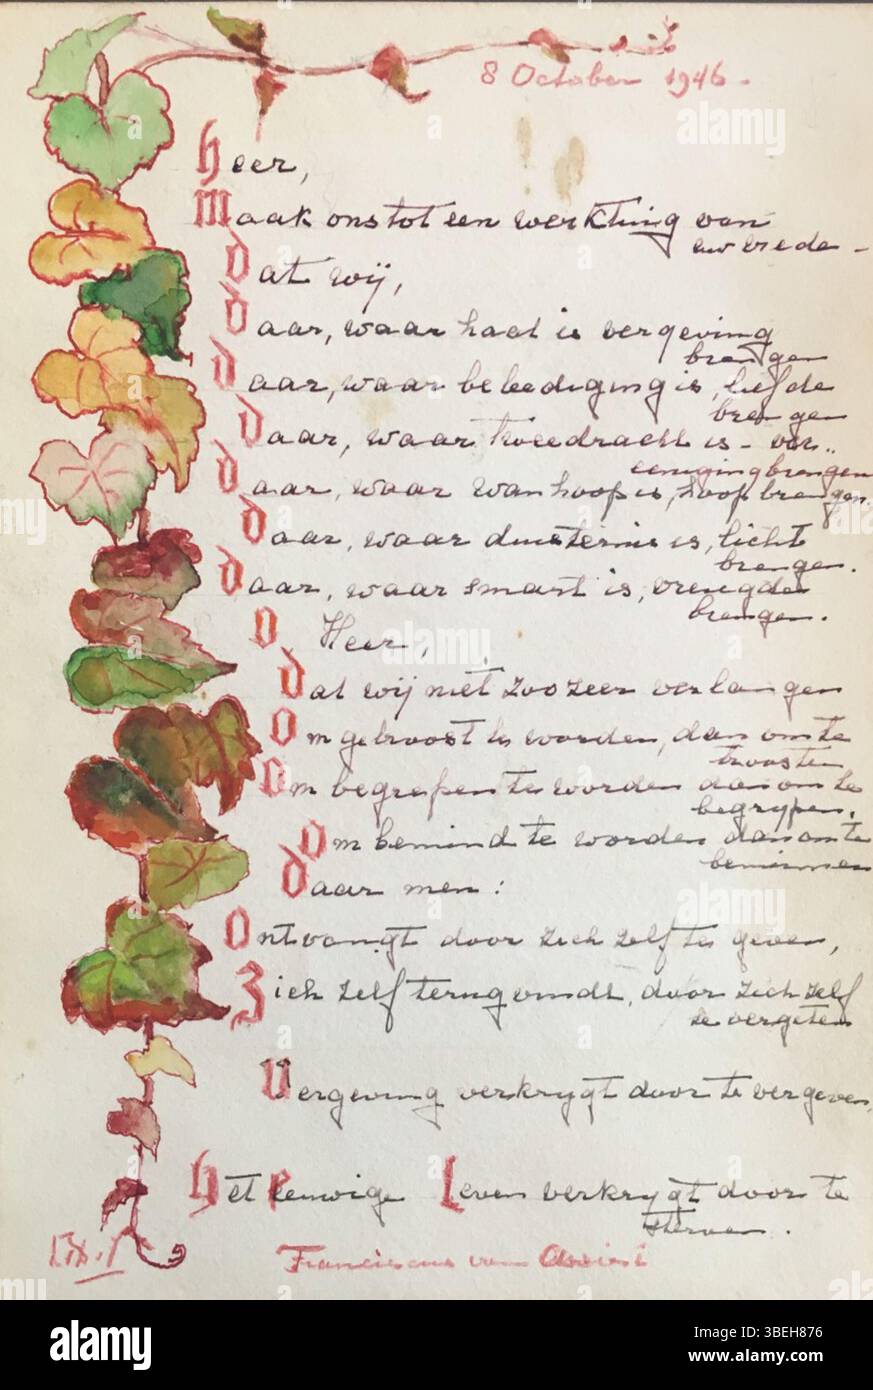 8 October 1946 -
Heer,
Maak ons tot een werktuig van
uw vrede -
Dat wij,
Daar, waar haat is vergeving
brengen
Daar, waar belediging is, liefde
brengen
Daar, waar tweedracht is - ver..
eeniging brengen
Daar, waar wanhoop is, hoop brengen.
Daar, waar duisternis is, licht
brengen.
Daar, waar smart is, vreugde
brengen.
O Heer,
dat wij niet zoo zeer verlangen
Om getroost te worden, dan om te
troosten
Om begrepen te worden dan om te
begrypen,
Om bemind te worden dan om te
beminnen
daar men:
Ontvangt door zich zelf te geven,
Zich zelf terugvindt, door zich zelf
te vergeten
Vergeving verkrygt door te vergeven,
Het Eeuwige Leven verkrygt door te
sterven.
Franciscus van Assisi
alamy
alamy
Image ID: 3BEH876
www.alamy.com